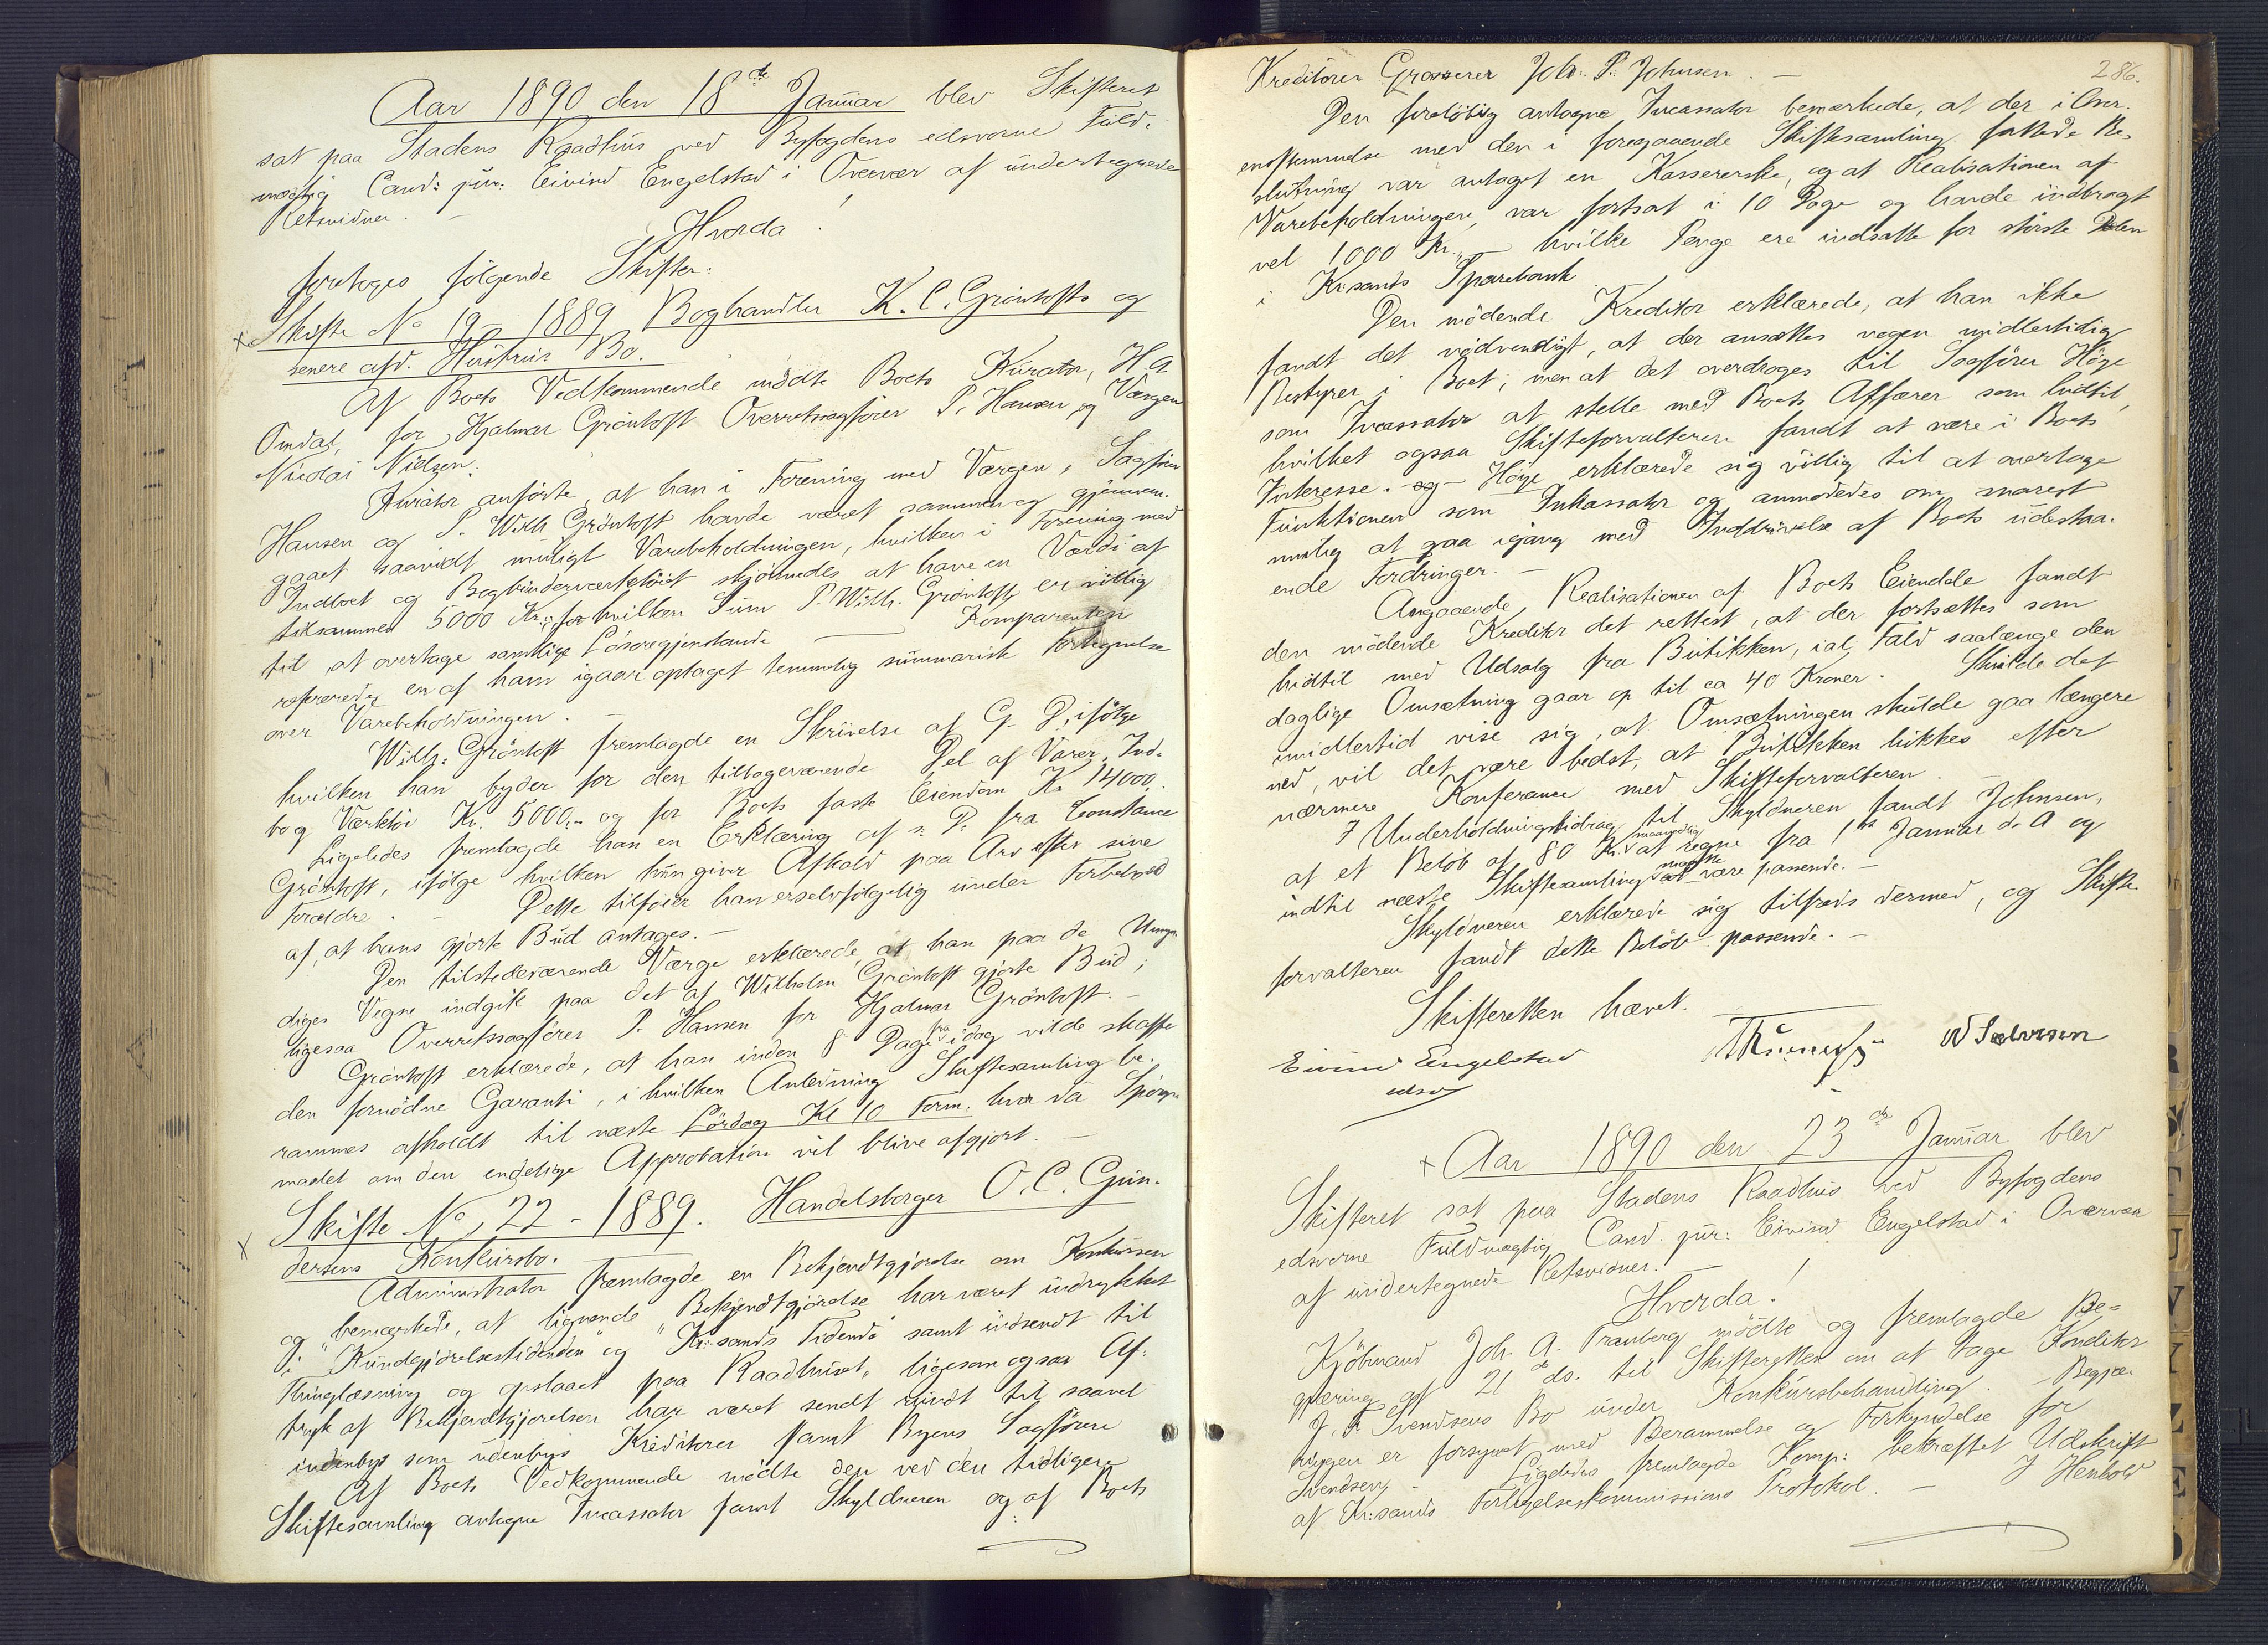 Aar 1890 den 18de Januar blev Skifteret
sat paa Stadens Raadhus ved Byfogdens edsvorne Fuld-
mægtig Cand: jur: Eivind Engelstad i Overvær af undertegnede
Retsvidner. –
Hvorda!
foretoges følgende Skifter:
x Skifte No 19 - 1889 Boghandler K. C. Grøntofts og
senere afd. Hustrus Bo.
Af Boets Vedkommende mødte Boets Kurator, H. A.
Omdal, for Hjalmar Grøntoft Overretssagfører P. Hansen og Værgen
Nicolai Nielsen.
Kurator anførte, at han i Forening med Værgen, Sagfører
Hansen og P. Wilh. Grøntoft havde været sammen og gjennem-
gaaet saavidt muligt Varebeholdningen, hvilken i Forening med
Indboet og Bogbinderværktøiet skjønnedes at have en Værdi af
tilsammen 5000 Kr., for hvilken Sum P. Wilh. Grøntoft er villig
til at overtage samtlige Løsøregjenstande – Komparenten
refererede en af ham igaar optaget temmelig summarisk Fortegnelse
over Varebeholdningen. –
Wilh. Grøntoft fremlagde en Skrivelse af G. D. ifølge
hvilken han byder for den tilbageværende Del af Varer, Ind-
bo og Værktøi Kr. 5000,- og for Boets faste Eiendom Kr 14000,-
Ligeledes fremlagde han en Erklæring af s. D. fra Constance
Grøntoft, ifølge hvilken hun giver Afkald paa Arv efter sine
Forældre. – Dette tilføier han er selvfølgelig under Forbehold
af, at hans gjorte Bud antages. –
Den tilstedeværende Værge erklærede, at han paa de Umyn-
diges Vegne indgik paa det af Wilhelm Grøntoft gjorte Bud;
ligesaa Overretssagfører P. Hansen for Hjalmar Grøntoft. –
Grøntoft erklærede, at han inden 8 Dage fra idag vilde skaffe
den fornødne Garanti, i hvilken Anledning Skiftesamling be-
rammes afholdt til næste Lördag Kl 10 Form. hvor da Spörgs-
maalet om den endelige Approbation vil blive afgjort. –
x Skifte No 22 - 1889. Handelsborger O. C. Gun-
dersens Konkursbo.
Administrator fremlagde en Bekjendtgjørelse om Konkursen
og bemærkede, at lignende Bekjendtgjørelse har været indrykket
i "Kundgjørelsestidenden" og "Kr:sands Tidende" samt indsendt til
Thinglæsning og opslaaet paa Raadhuset, ligesom ogsaa Af-
tryk af Bekjendtgjørelsen har været sendt rundt til saavel
indenbys som udenbys Kreditorer samt Byens Sagførere
Af Boets Vedkommende mødte den ved den tidligere
Skiftesamling antagne Incassator samt Skyldneren og af Boets
286.
Kreditorer Grosserer Joh: P. Johnsen. –
Den foreløbig antagne Incassator bemærkede, at der i Over-
ensstemmelse med den i foregaaende Skiftesamling fattede Be-
slutning var antaget en Kassererske, og at Realisationen af
Varebeholdningen var fortsat i 10 Dage og havde indbragt
vel 1000 Kr., – hvilke Penge ere indsatte for største Delen
i Kr:sands Sparebank
Den mødende Kreditor erklærede, at han ikke
fandt det nødvendigt, at der ansættes nogen midlertidig
Bestyrer i Boet; men at det overdroges til Sagfører Høye
som Incassator at stelle med Boets Affærer som hidtil,
hvilket ogsaa Skifteforvalteren fandt at være i Boets
Interesse. og – Høye erklærede sig villig til at overtage
Funktionen som Inkassator og anmodedes om snarest
mulig at gaa igang med Inddrivelse af Boets udestaa-
ende Fordringer. –
Angaaende Realisationen af Boets Eiendele fandt
den mødende Kreditor det rettest, at der fortsættes som
hidtil med Udsalg fra Butikken, ial Fald saalænge den
daglige Omsætning gaar op til ca 40 Kroner. Skulde det
imidlertid vise sig, at Omsætningen skulde gaa længere
ned, vil det være bedst, at Butikken lukkes efter
nærmere Konferance med Skifteforvalteren. –
I Underholdningsbidrag til Skyldneren fandt Johnsen,
at et Beløb af 80 Kr. maanedlig at regne fra 1ste Januar d. A og
indtil næste Skiftesamling maatte være passende. –
Skyldneren erklærede sig tilfreds dermed, og Skifte-
forvalteren fandt dette Beløb passende. –
Skifteretten hævet.
Eivind Engelstad
edsv
x Aar 1890 den 23de Januar blev
Skifteret sat paa Stadens Raadhus ved Byfogdens
edsvorne Fuldmægtig Cand. jur: Eivind Engelstad i Overvær
af undertegnede Retsvidner. –
Hvorda!
Kjöbmand Joh. A. Tranberg mödte og fremlagde Be-
gjæring af 21de ds. til Skifteretten om at tage Konditor
J. F. Svendsens Bo under Konkursbehandling. – Begjæ-
ringen er forsynet med Berammelse og Forkyndelse for
Svendsen. Ligeledes fremlagde Komp: bekræftet Udskrift
af Kr:sands Forligelseskommissions Protokol. – I Henhold